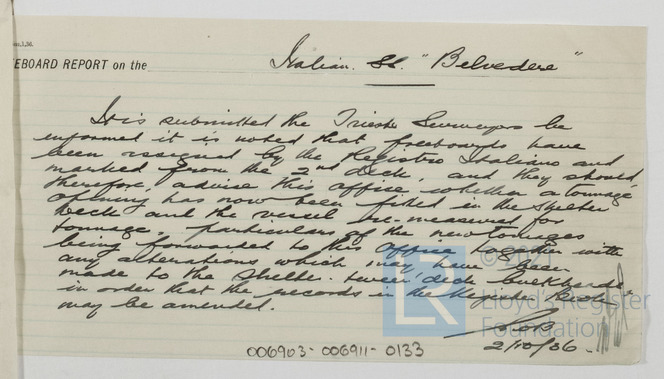 EBOARD REPORT on the Italian. SS. "Belvedere"
It is submitted the Trieste Surveyors be
informed it is noted that freeboards have
been assigned by the Registro Italiano and
marked from the 2nd deck, and they should
therefore, advise this office whether a tonnage
opening has now been fitted in the shelter
deck and the vessel re-measured for
tonnage, particulars of the new tonnages
being forwarded to this office together with
any alterations which may have been
made to the shelter tween deck bulkheads
in order that the records in the Register Book
may be amended.
2/10/36
006903-006911-0133
© 2021
LR
Lloyd's Register
Foundation